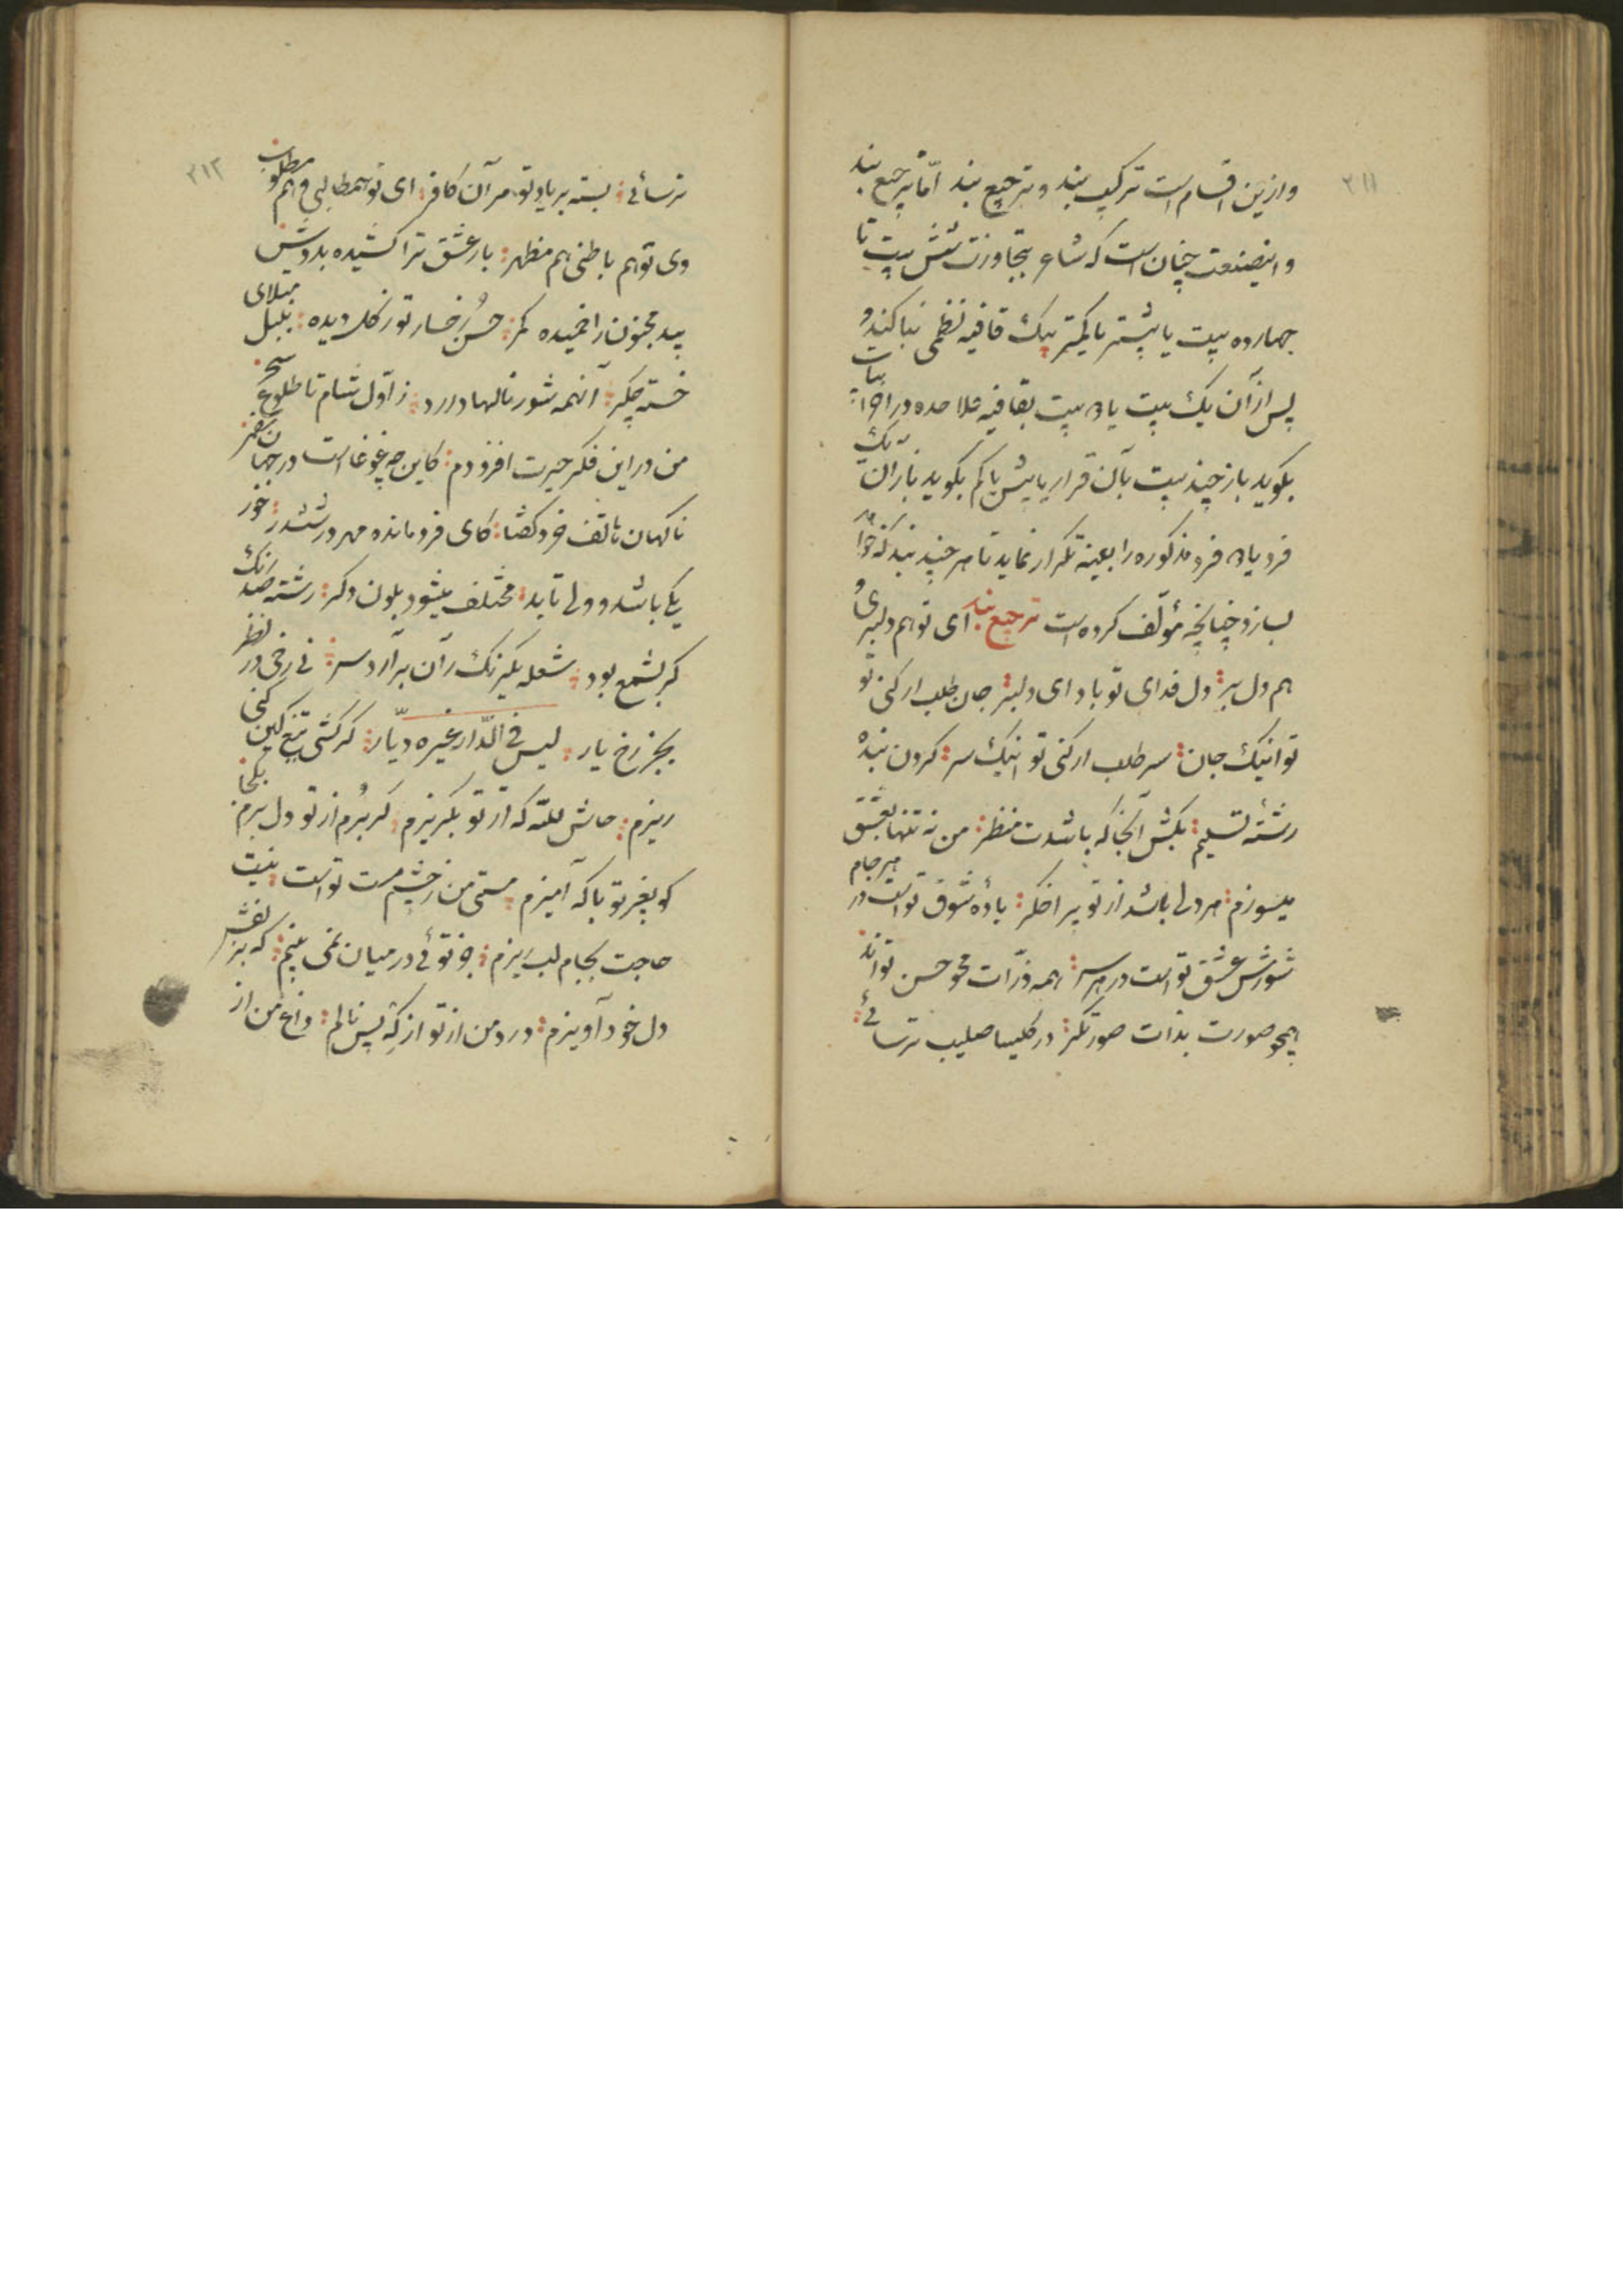 ۳۱۱
وازین اقسام است ترکیب بند و ترجیع بند امّا ترجیع بند
و اینصنعت چنان است که شاعر بتجاوزت شش بیت تا
چهارده بیت یا بیشتر یا کمتر بیک قافیه نظمی بنا کند و
پس از آن یک بیت یا دو بیت بقافیه علاحده در آخر ابیات
بگوید باز چند بیت بآن قرار یا بیش یا کم بگوید باز آن یک
فرد یا دو فرد مذکوره را بعینه تکرار نماید تا هر چند بند که خواهد
بسازد چنانچه مؤلّف کرده است ترجیع بند ای تو هم دلبری و
هم دل بر دل فدای تو باد ای دلبر جان طلب ار کنی تو
تو اینک جان سر طلب ار کنی تو اینک سر کردن بنده
رشتهٔ تسلیم بکش آنجا که باشدت منظر من نه تنها بعشق
میسوزم هر دلی باشد از تو پر اخکر بادهٔ شوق تو است در هر جام
شورش عشق تو است در هر سر همه ذرّات محو حسن تواند
همچو صورت بذات صورتکر در کلیسا صلیب ترسائی
۳۱۲
ترسائی بسته بر یاد تو مر آن کافر ای تو هم طالبی و هم مطلوب
وی تو هم باطنی هم مظهر بار عشق ترا کشیده بدوش
بید مجنون را خمیده کمر حسن رخسار تو ز کل دیده بلبل مبتلای
خسته جکر آنهمه شور نالها دارد ز اوّل شام تا طلوع سحر
من در این فکر حیرت افزودم کاین چه غوغا است در جهان
ناکهان هاتف خرد کفتا کای فرو مانده در ششدر خور
یکی باشد و ولی تابد مختلف میشود بلون دکر رشته صد رنک
کر بشمع بود شعله یکرنک از آن برآرد سر نی رخی در نظر
بجز رخ یار لیس فی الدّار غیره دیّار کر کشی تیغ کین کنی
ریزم حاش للّه که از تو بکریزم کر برم از تو دل برم بکجا
کو بغیر تو با که آمیزم مستی من ز چشم مست تو است نیست
حاجت بجام لب ریزم جز توئی در میان نمی بینم که بر نقش
دل خود آویزم درد من از تو از که پس نالم داغ من از